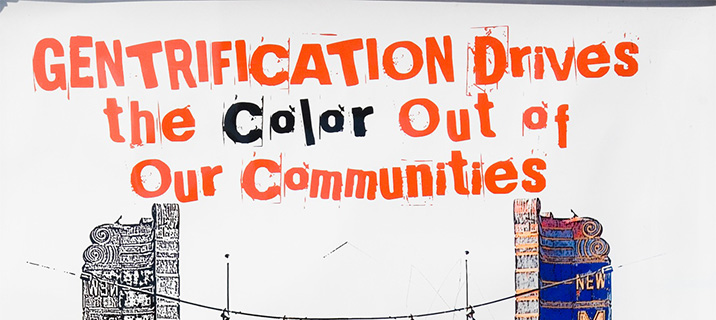 GENTRIFICATION Drives
the Color Out of
Our Communities
NEW